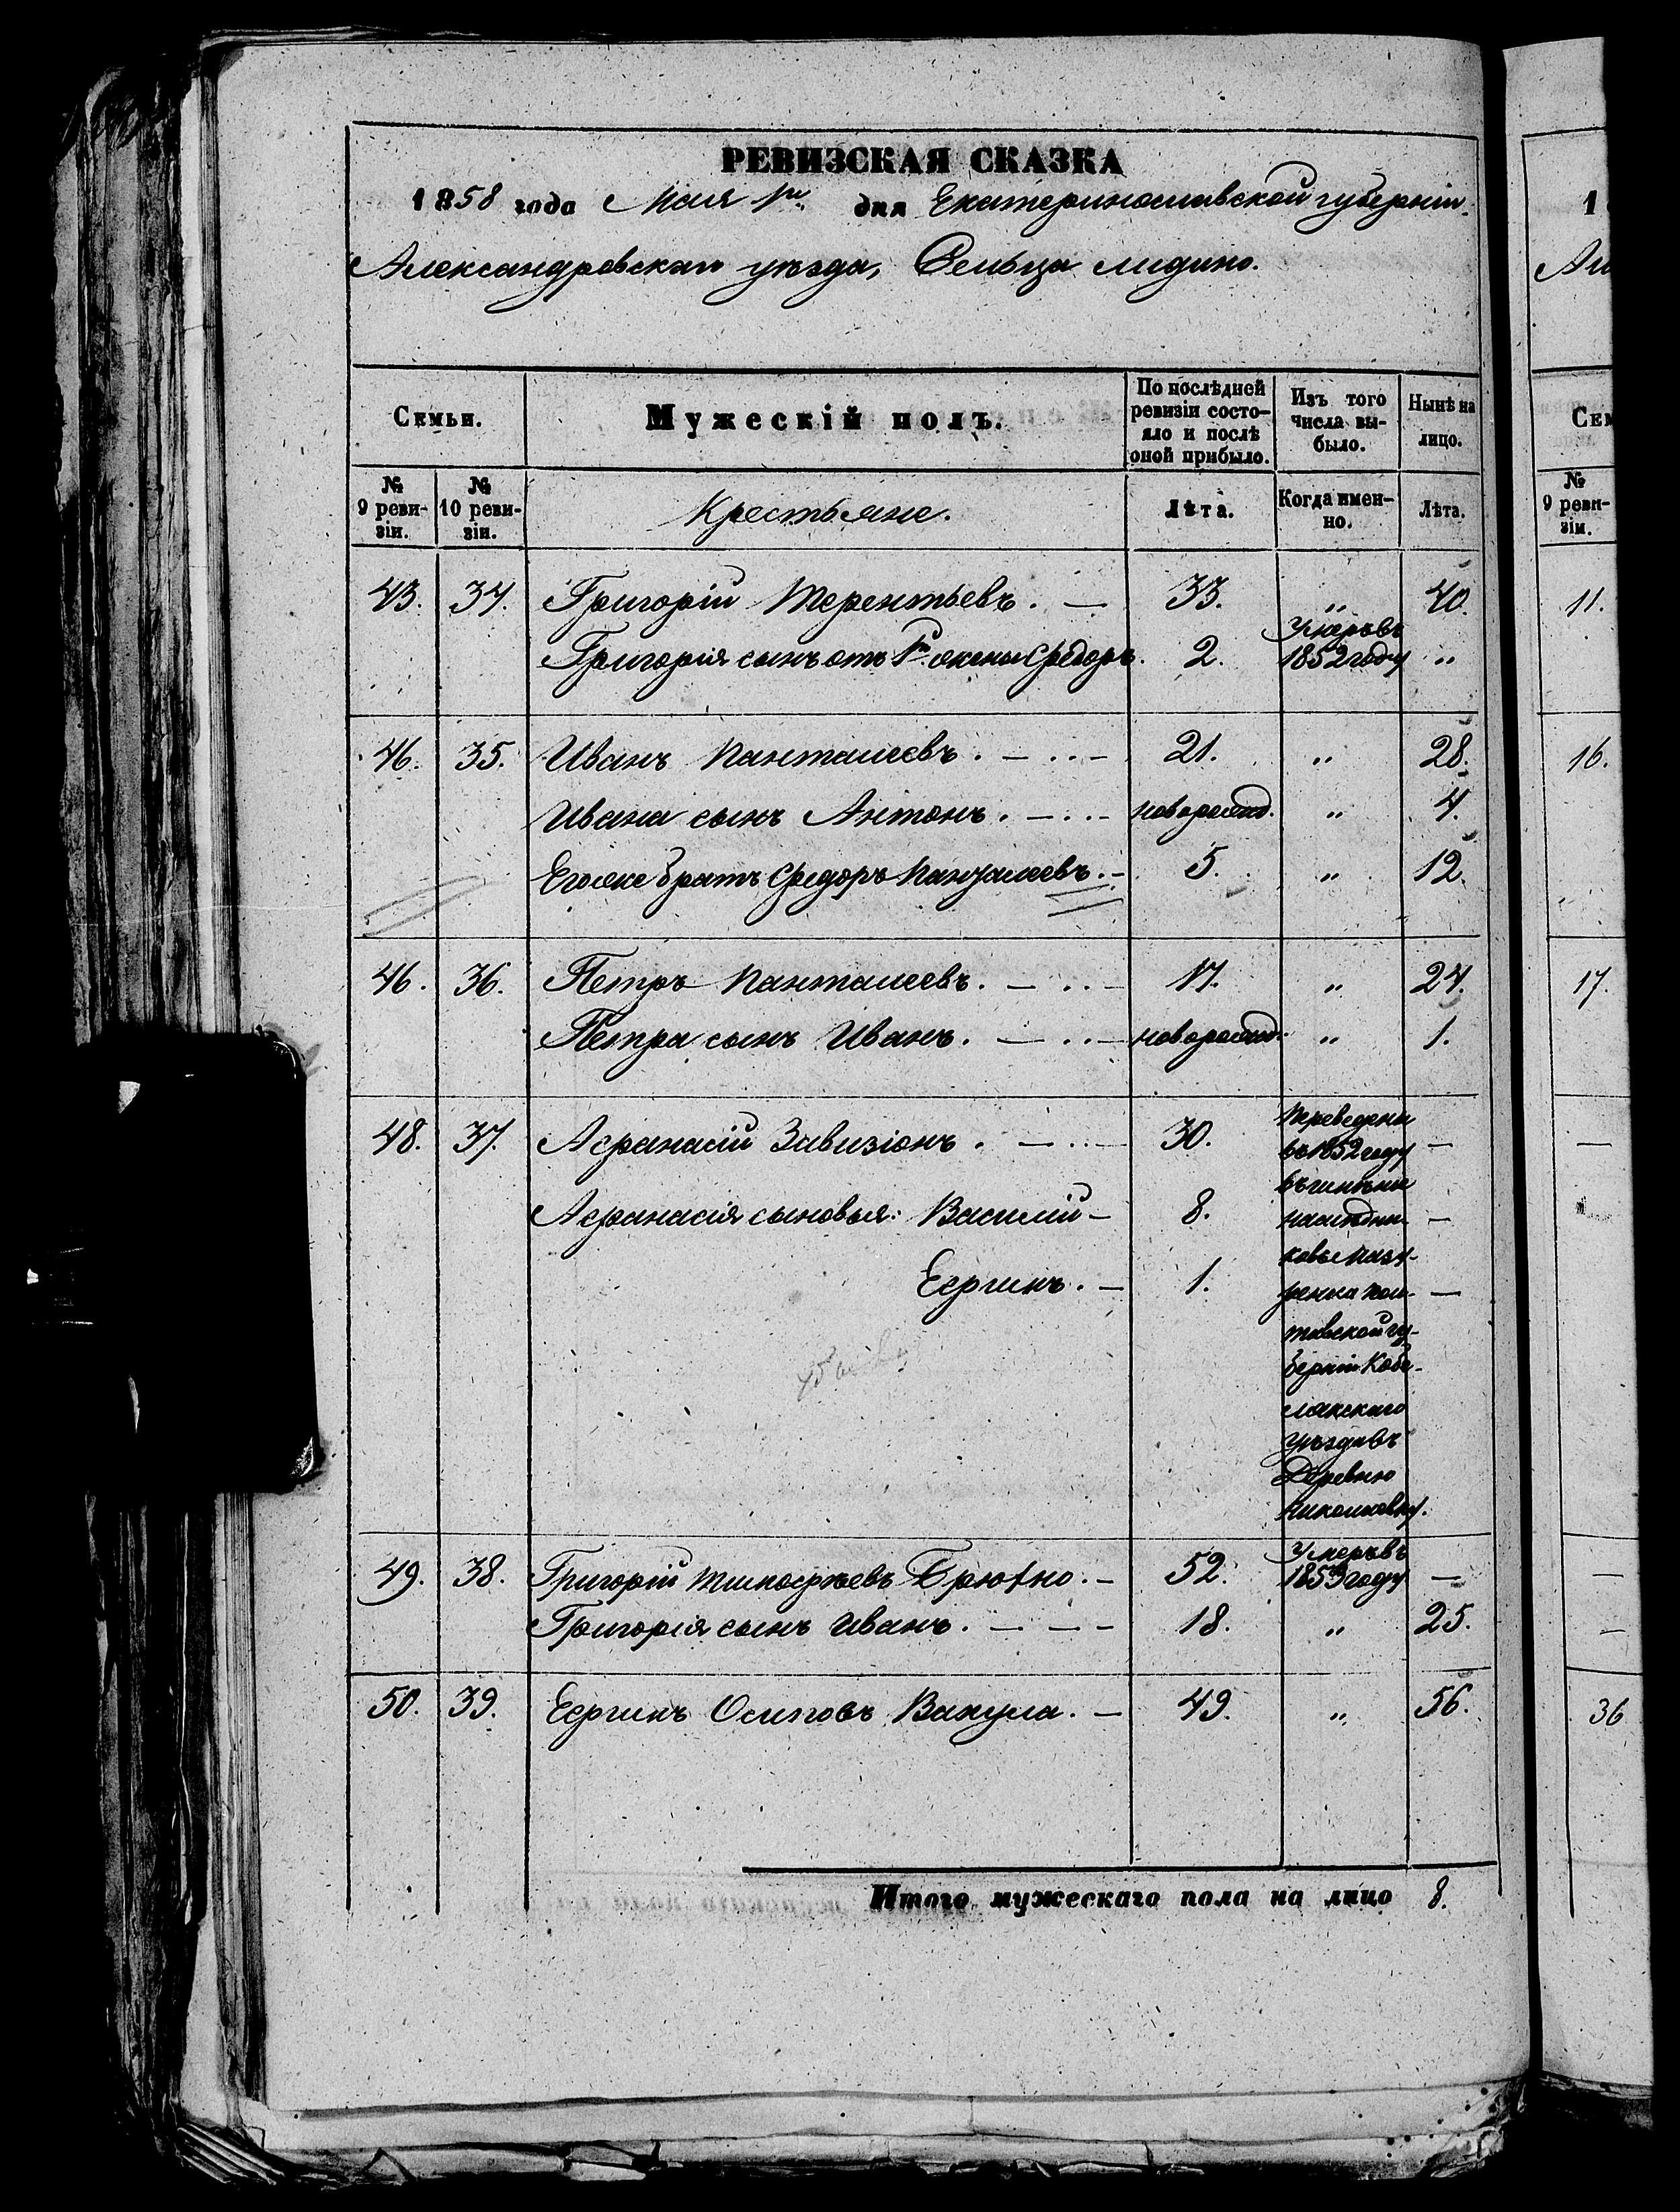 РЕВИЗСКАЯ СКАЗКА
1858 года Мая 1го дня Екатеринославской губерніи
Александровскаго уѣзда, Сельца Лидино.
Семьи.
Мужескій полъ.
По послѣдней ревизіи состояло и послѣ оной прибыло.
Изъ того числа выбыло.
Нынѣ на лицо.
№ 9 ревизіи.
№ 10 ревизіи.
Крестьяне.
Лѣта.
Когда именно.
Лѣта.
43. 34. Григорій Терентьевъ. — 33. „ 40.
Григорія сынъ отъ 1й жены Федоръ. 2. Умеръ въ 1852 году „
46. 35. Иванъ Панталеевъ. — 21. „ 28.
Ивана сынъ Антонъ. — новорожд. „ 4.
Его же братъ Федоръ Панталеевъ. — 5. „ 12.
46. 36. Петръ Панталеевъ. — 17. „ 24.
Петра сынъ Иванъ. — новорожд. „ 1.
48. 37. Афанасій Завизіонъ. — 30. —
Афанасія сыновья: Василій — 8. —
Ефимъ. — 1. —
Переведены
въ 1852 году
въ имѣніе
наслѣдни-
ковъ
Пол-
тавской гу-
берніи Кобе-
лякскаго
уѣзда въ
Деревню
49. 38. Григорій Тимофѣевъ — 52. Умеръ въ 1853 году —
Григорія сынъ Иванъ. — 18. „ 25.
50. 39. Ефимъ Осиповъ Вакула. — 49. „ 56.
Итого мужескаго пола на лицо 8.
1
Ал
Сем
№ 9 ревизіи.
11.
16.
17.
—
—
—
36